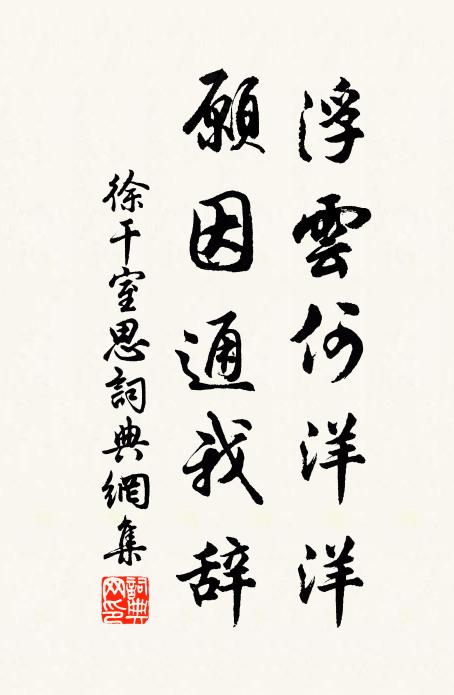 浮雲何洋洋
願因通我辞
徐干室思詞典網集
詞典网印